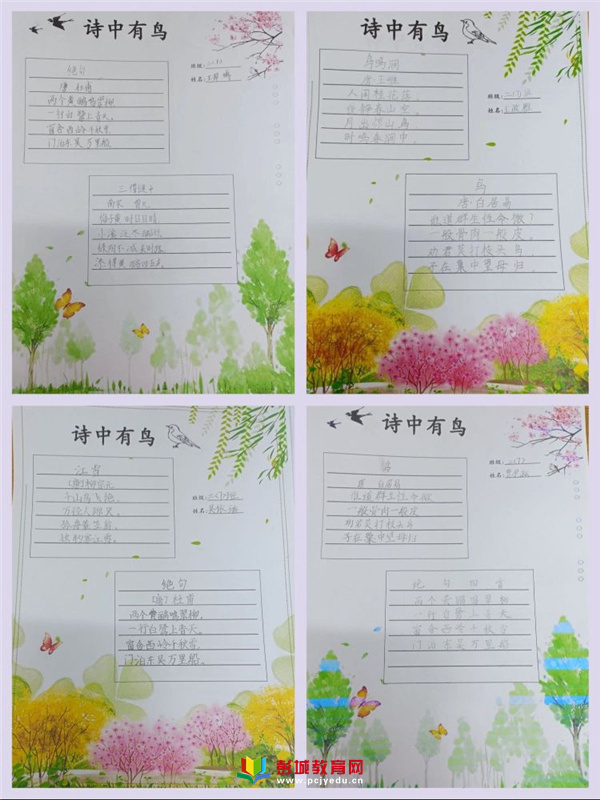 诗中有鸟
班级:
姓名:
绝句
唐 杜甫
两个黄鹂鸣翠柳
一行白鹭上青天。
窗含西岭千秋雪
门泊东吴万里船
三衢道中
南宋 曾几
梅子黄时日日晴
小溪泛尽
绿阴不减来时路
诗中有鸟
班级:
姓名:
鸟鸣涧
唐 王维
人闲桂花落
夜静春山空。
月出惊山鸟
时鸣春涧中。
鸟
唐·白居易
谁道群生性命微?
一般骨肉一般皮
劝君莫打枝头鸟
子在巢中望母归。
诗中有鸟
班级:
姓名:
江雪
(唐)柳宗元
千山鸟飞绝,
万径人踪灭。
孤舟蓑笠翁,
独钓寒江雪。
绝句
(唐)杜甫
两个黄鹂鸣翠柳,
一行白鹭上青天。
窗含西岭千秋雪,
门泊东吴万里船。
诗中有鸟
班级:
姓名:
唐 白居易
谁道群生性命微
一般骨肉一般皮
劝君莫打枝头鸟
子在巢中望母归
两个黄鹂鸣翠柳
一行白鹭上青天
窗含西岭千秋雪
门泊东吴万里船
彭城教育网
www.pcjyedu.cn